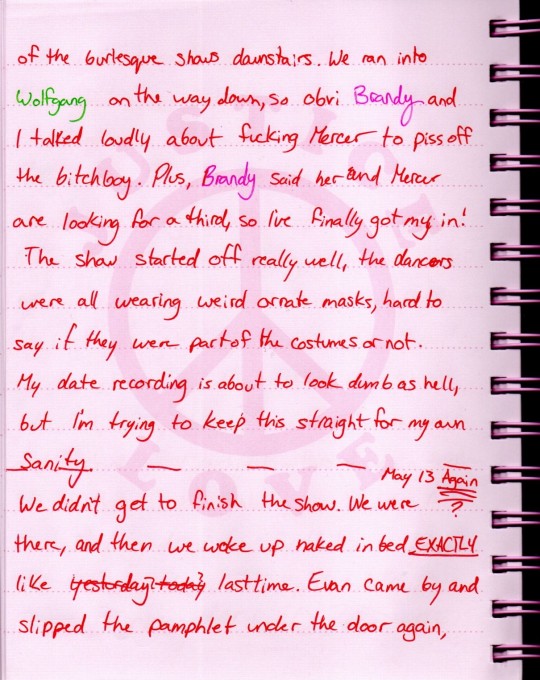 of the burlesque shows downstairs. We ran into
Wolfgang on the way down, so obvi Brandy and
I talked loudly about fucking Mercer to piss off
the bitchboy. Plus, Brandy said her and Mercer
are looking for a third, so I've finally got my in!
The show started off really well, the dancers
were all wearing weird ornate masks, hard to
say if they were part of the costumes or not.
My date recording is about to look dumb as hell,
but I'm trying to keep this straight for my own
Sanity.
May 13 Again
?
We didn't get to finish the show. We were
there, and then we woke up naked in bed EXACTLY
like yesterday? today? last time. Evan came by and
slipped the pamphlet under the door again,
JUSTICE
LOVE